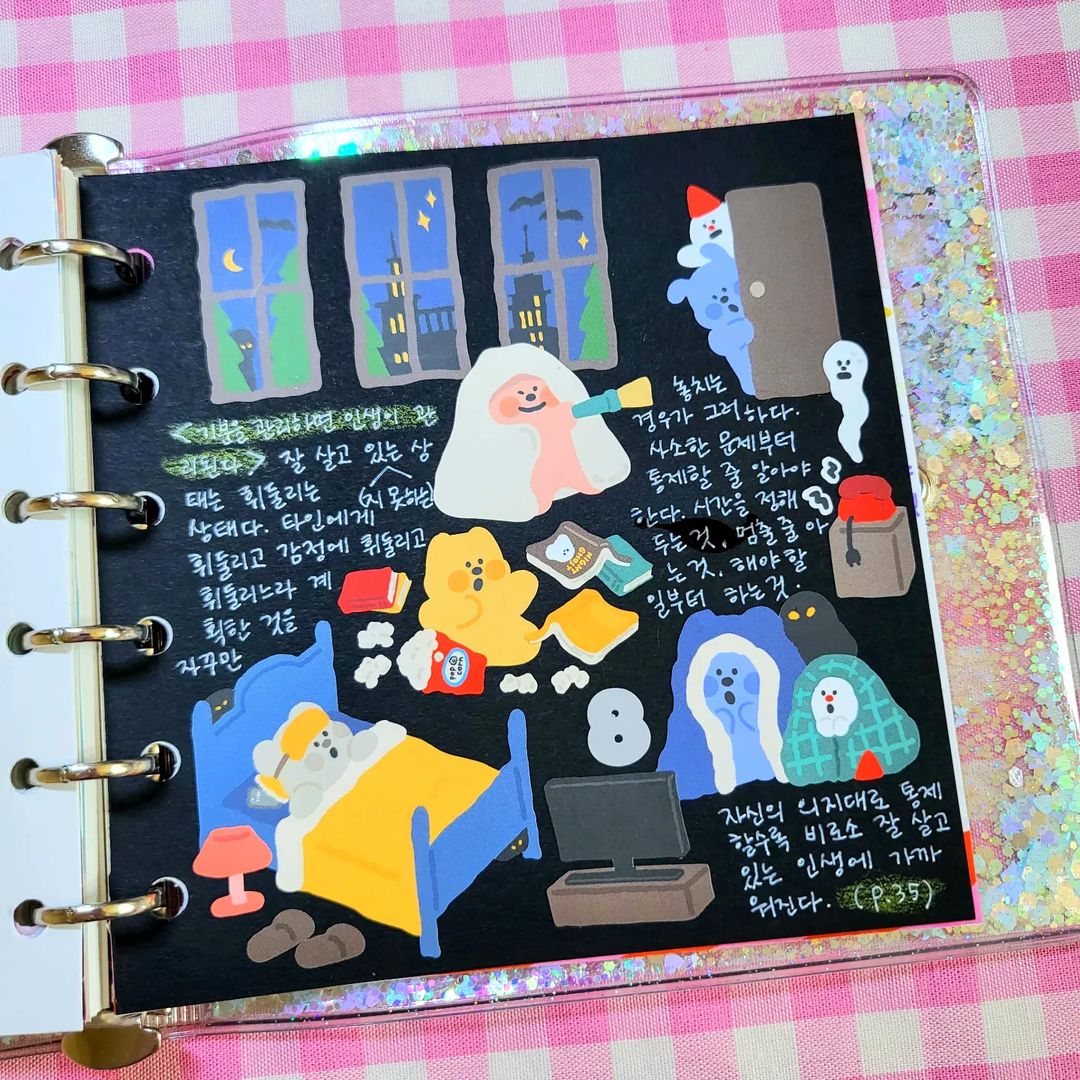 <기분을 관리하면 인생이 관
리된다> 잘 살고 있는 상
(지 못하는)
태는 휘둘리는
상태다. 타인에게
휘둘리고 감정에 휘둘리고
휘둘리느라 계
획한 것을
자꾸만
놓치는
경우가 그러하다.
사소한 문제부터
통제할 줄 알아야
한다. 시간을 정해
두는 것. 멈출 줄 아
는 것. 해야 할
일부터 하는 것.
자신의 의지대로 통제
할수록 비로소 잘 살고
있는 인생에 가까
워진다. (p.35)
NIGHT
GHOST
pop
corn